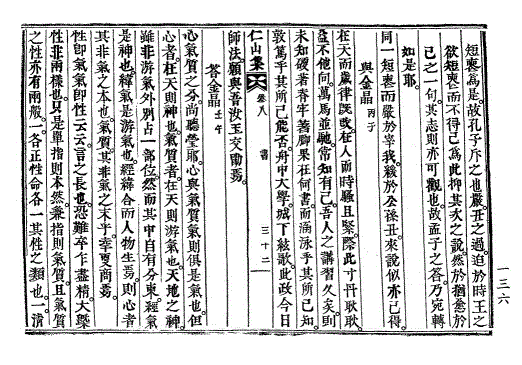 短喪爲是故孔子斥之也嚴丑之過迫於時王之
欲短喪而不得已爲此抑其次之說然於猶愈於
己之一句其志則亦可觀也故孟子之答乃宛轉
如是耶
同一短喪而嚴於宰我緩於公孫丑來說似亦已得
與金晶 丙子
在天而歲律旣改在人而時騷且緊際此寸丹耿耿
益不他向萬馬並馳常知有己吾人之講習久矣則
未知硬著脊牢著脚果在何書而涵泳乎其所已知
敦篤乎其所己能否舟中大學城下絃歌此政今日
仁山集 卷八 書 三十二
師法願與吾汝王交勖焉
答金晶 壬午
心氣質之分尚聽瑩耶心與氣質氣則俱是氣也但
心者在天則神也氣質者在天則游氣也天地之神
雖非游氣外別占一部位然而其中自有分東經氣
是神也緯氣是游氣也經緯合而人物生焉則心者
其非氣之本也氣質其非氣之末乎幸更商焉
性卽氣氣卽性云云言之長也恐難卒乍盡精大槩
性非兩樣也只是單指則本然兼指則氣質也一原
之性亦有兩般一各正性命各一其性之類也一淸
一三六